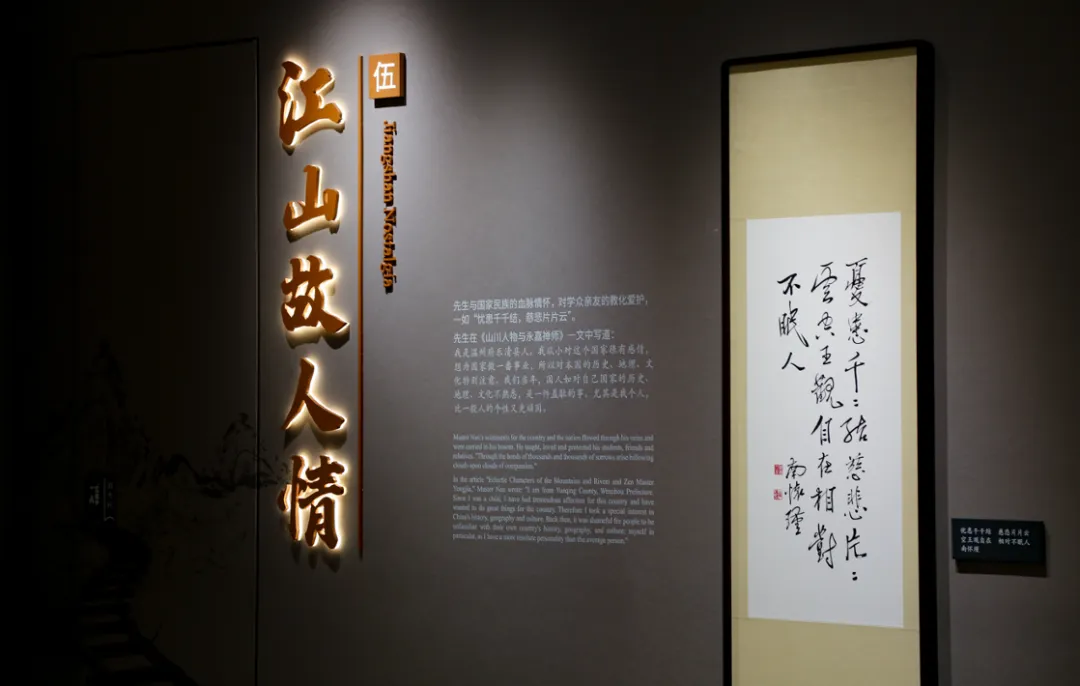 江山故人情
伍
Jiangshan Nostalgia
先生与国家民族的血脉情怀，对学众亲友的教化爱护，
一如“忧患千千结，慈悲片片云”。
先生在《山川人物与永嘉禅师》一文中写道：
我是温州府乐清县人。我从小对这个国家很有感情，
想为国家做一番事业，所以对本国的历史、地理、文
化特别注意。我们当年，国人如对自己国家的历史、
地理、文化不熟悉，是一件羞耻的事。尤其是我个人，
比一般人的个性又更顽固。
Master Nan's sentiments for the country and the nation flowed through his veins and
were carried in his bosom. He taught, loved and protected his students, friends and
relatives. "Through the bends of thousands and thousands of sorrows arise following
clouds upon clouds of compassion."
In the article "Eclectic Characters of the Mountains and Rivers and Zen Master
Yongjia," Master Nan wrote: "I am from Yueqing County, Wenzhou Prefecture.
Since I was a child, I have had tremendous affection for this country and have
wanted to do great things for the country. Therefore I took a special interest in
China's history, geography and culture. Back then, it was shameful for people to be
unfamiliar with their own country's history, geography, and culture; myself in
particular, as I have a more resolute personality than the average person."
憂患千=結慈悲片=
雲空王觀自在相對
不眠人
南懷瑾
忧患千千结 慈悲片片云
空王观自在 相对不眠人
南怀瑾